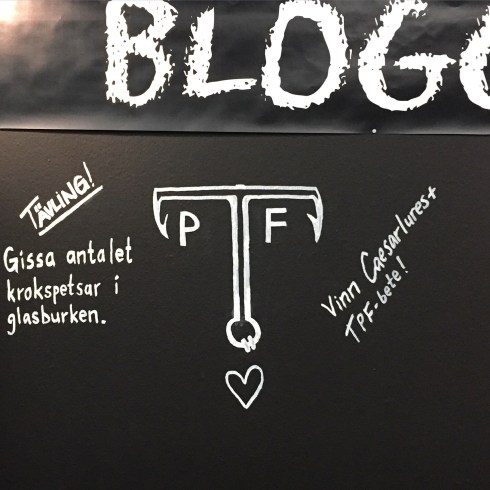 BLOGG
TÄVLING!
Gissa antalet
krokspetsar i
glasburken.
P T F
Vinn Caesarlures+
TPF-bete!